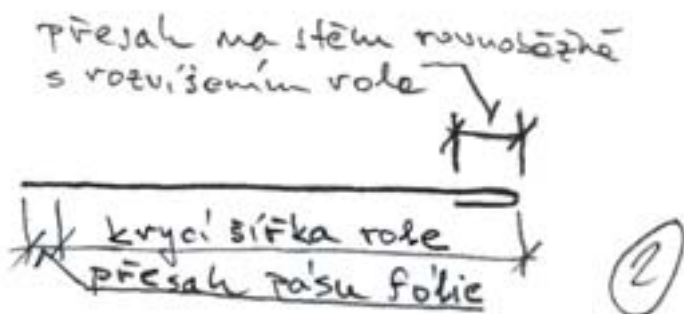 přesah na stěn rovnoběžně
s rozvišením role
krycí šířka role
přesah pásu fólie
2